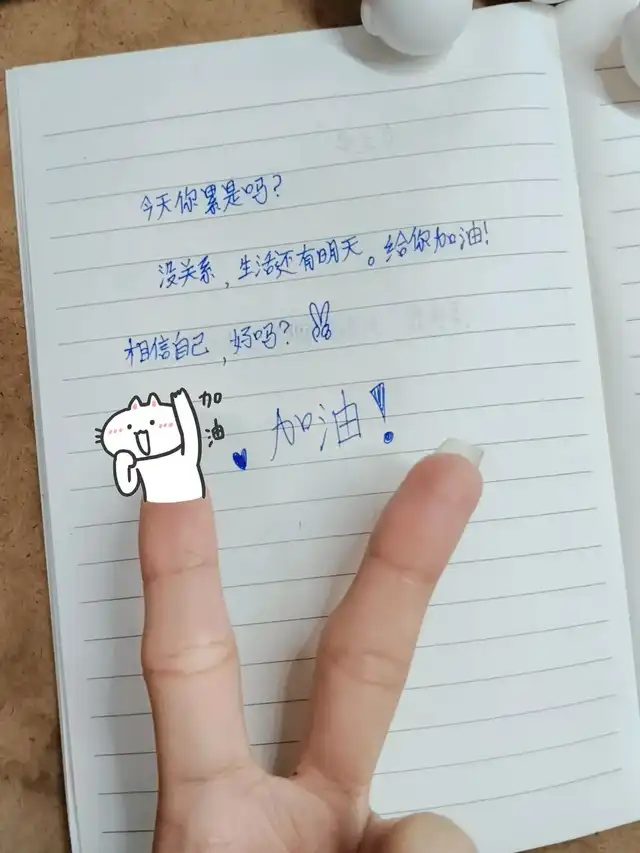 今天你累是吗？
没关系，生活还有明天。给你加油！
相信自己，好吗？
加油
加油！